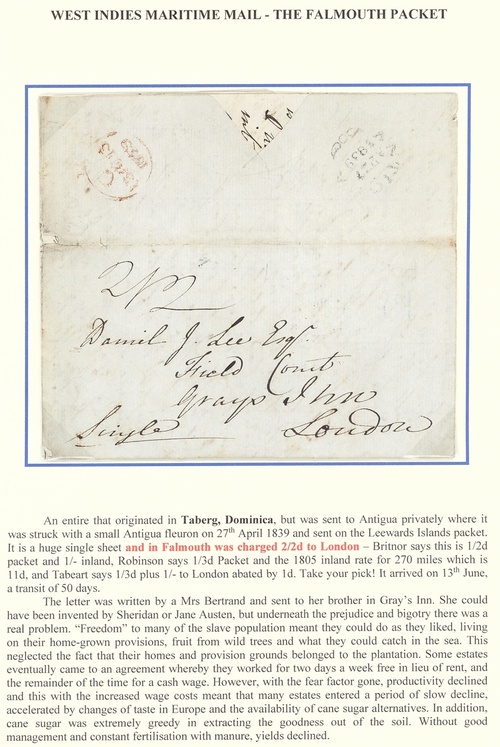 WEST INDIES MARITIME MAIL - THE FALMOUTH PACKET
2/2
Daniel J. Lee Esqr.
Field Court
Grays Inn
Single London
An entire that originated in Taberg, Dominica, but was sent to Antigua privately where it
was struck with a small Antigua fleuron on 27th April 1839 and sent on the Leewards Islands packet.
It is a huge single sheet and in Falmouth was charged 2/2d to London – Britnor says this is 1/2d
packet and 1/- inland, Robinson says 1/3d Packet and the 1805 inland rate for 270 miles which is
11d, and Tabeart says 1/3d plus 1/- to London abated by 1d. Take your pick! It arrived on 13th June,
a transit of 50 days.
The letter was written by a Mrs Bertrand and sent to her brother in Gray's Inn. She could
have been invented by Sheridan or Jane Austen, but underneath the prejudice and bigotry there was a
real problem. "Freedom" to many of the slave population meant they could do as they liked, living
on their home-grown provisions, fruit from wild trees and what they could catch in the sea. This
neglected the fact that their homes and provision grounds belonged to the plantation. Some estates
eventually came to an agreement whereby they worked for two days a week free in lieu of rent, and
the remainder of the time for a cash wage. However, with the fear factor gone, productivity declined
and this with the increased wage costs meant that many estates entered a period of slow decline,
accelerated by changes of taste in Europe and the availability of cane sugar alternatives. In addition,
cane sugar was extremely greedy in extracting the goodness out of the soil. Without good
management and constant fertilisation with manure, yields declined.